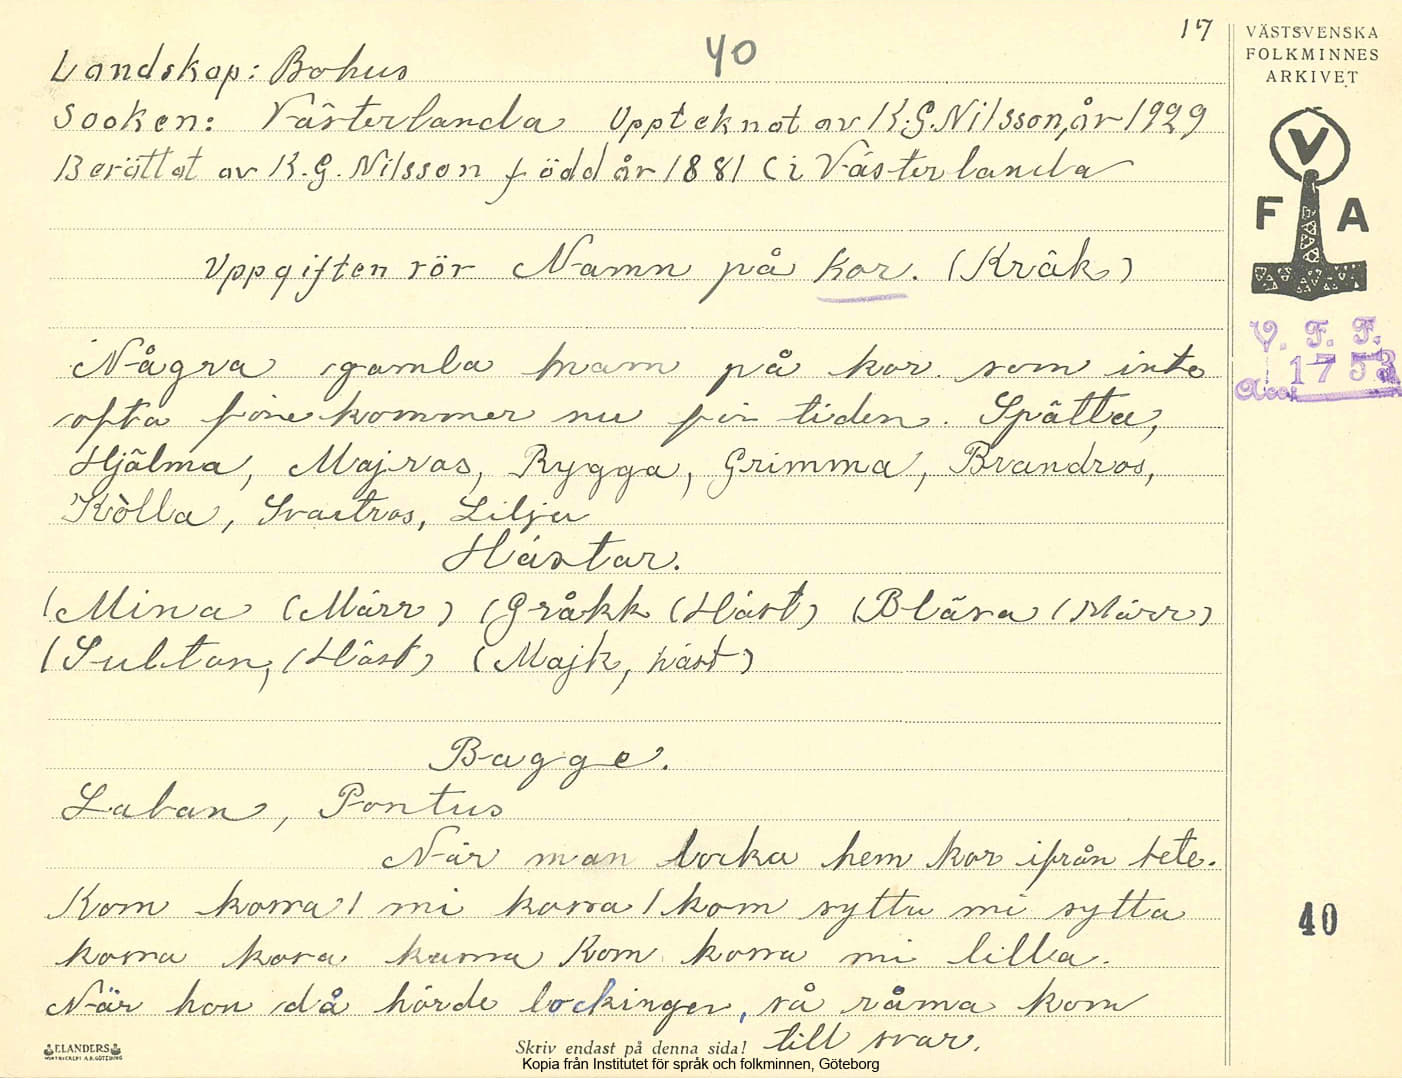 17
40
VÄSTSVENSKA
FOLKMINNES
ARKIVET
Landskap: Bohus
Socken: Västerlanda Upptecknat av K.G.Nilsson, år 1929
Berättat av K.G.Nilsson född år 1881 (i Västerlanda
V
F A
Uppgiften rör Namn på Kor. (Kräk)
V. F. F.
1753
Acc.
Några gamla namn på kor som inte
ofta förekommer nu för tiden. Spätta,
Hjälma, Majros, Rygga, Grimma, Brandros,
Kòlla, Svartros, Lilja
Hästar.
(Mina (Märr) (Gråkk (Häst) (Bläsa (Märr)
(Sultan, (Häst) (Majk, häst)
Bagge.
Laban, Pontus
När man locka hem kor ifrån bete.
Kom kossa! mi kossa! kom sytta mi sytta
kossa kosa kussa Kom kossa mi lilla.
När hon då hörde lockingen, så råma kom
till svar.
40
ELANDERS
Skriv endast på denna sida!
Kopia från Institutet för språk och folkminnen, Göteborg